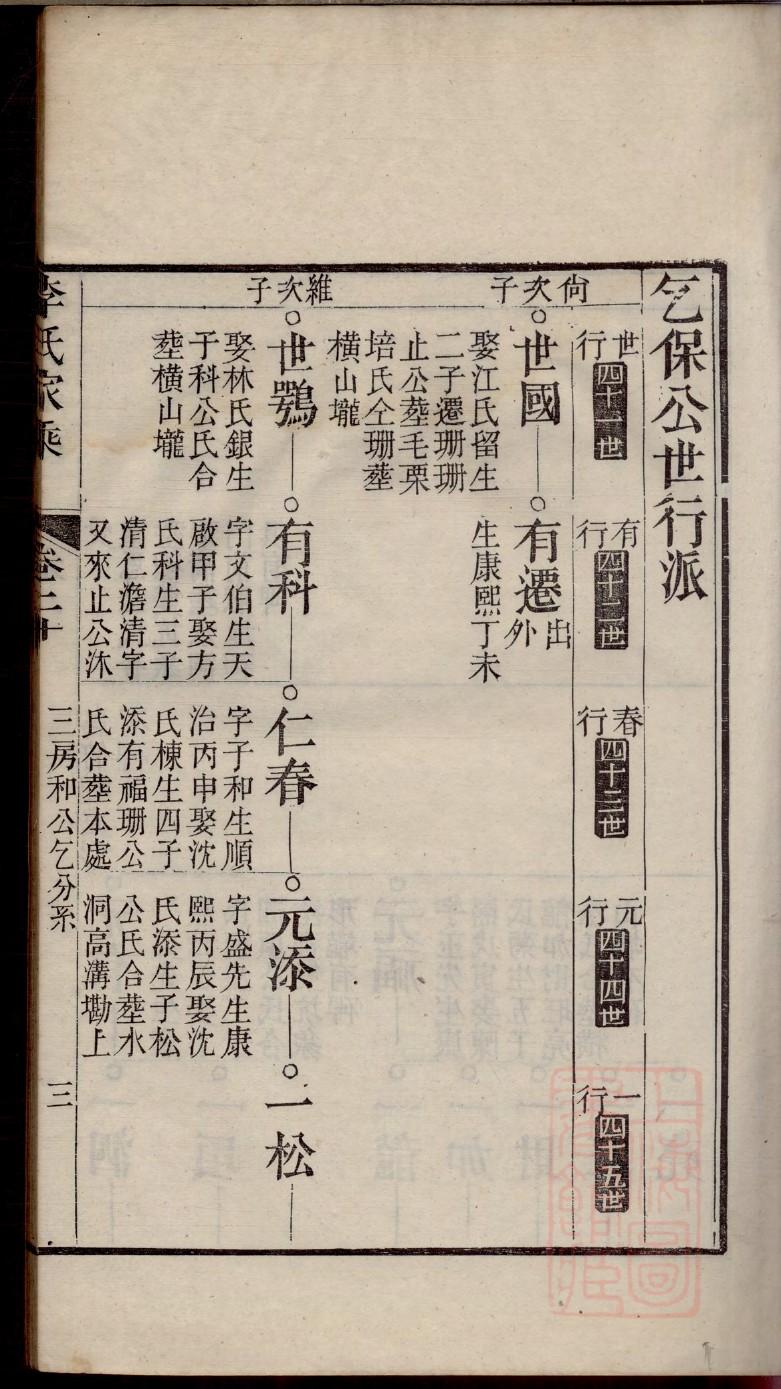 乞保公世行派
世行 四十一世
有行 四十二世
春行 四十三世
元行 四十四世
一行 四十五世
尙次子
世國
娶江氏留生
二子遷珊珊
止公塟毛栗
培氏仝珊塟
橫山壠
有遷 出外
生康熙丁未
維次子
世鶚
娶林氏銀生
于科公氏合
塟橫山壠
有科
字文伯生天
啟甲子娶方
氏科生三子
清仁澹清字
又來止公沐
仁春
字子和生順
治丙申娶沈
氏棟生四子
添有福珊公
氏合塟本處
元添
字盛先生康
熙丙辰娶沈
氏添生子松
公氏合塟水
洞高溝墈上
一松
李氏家乘
卷二十
三房和公乞分系
三